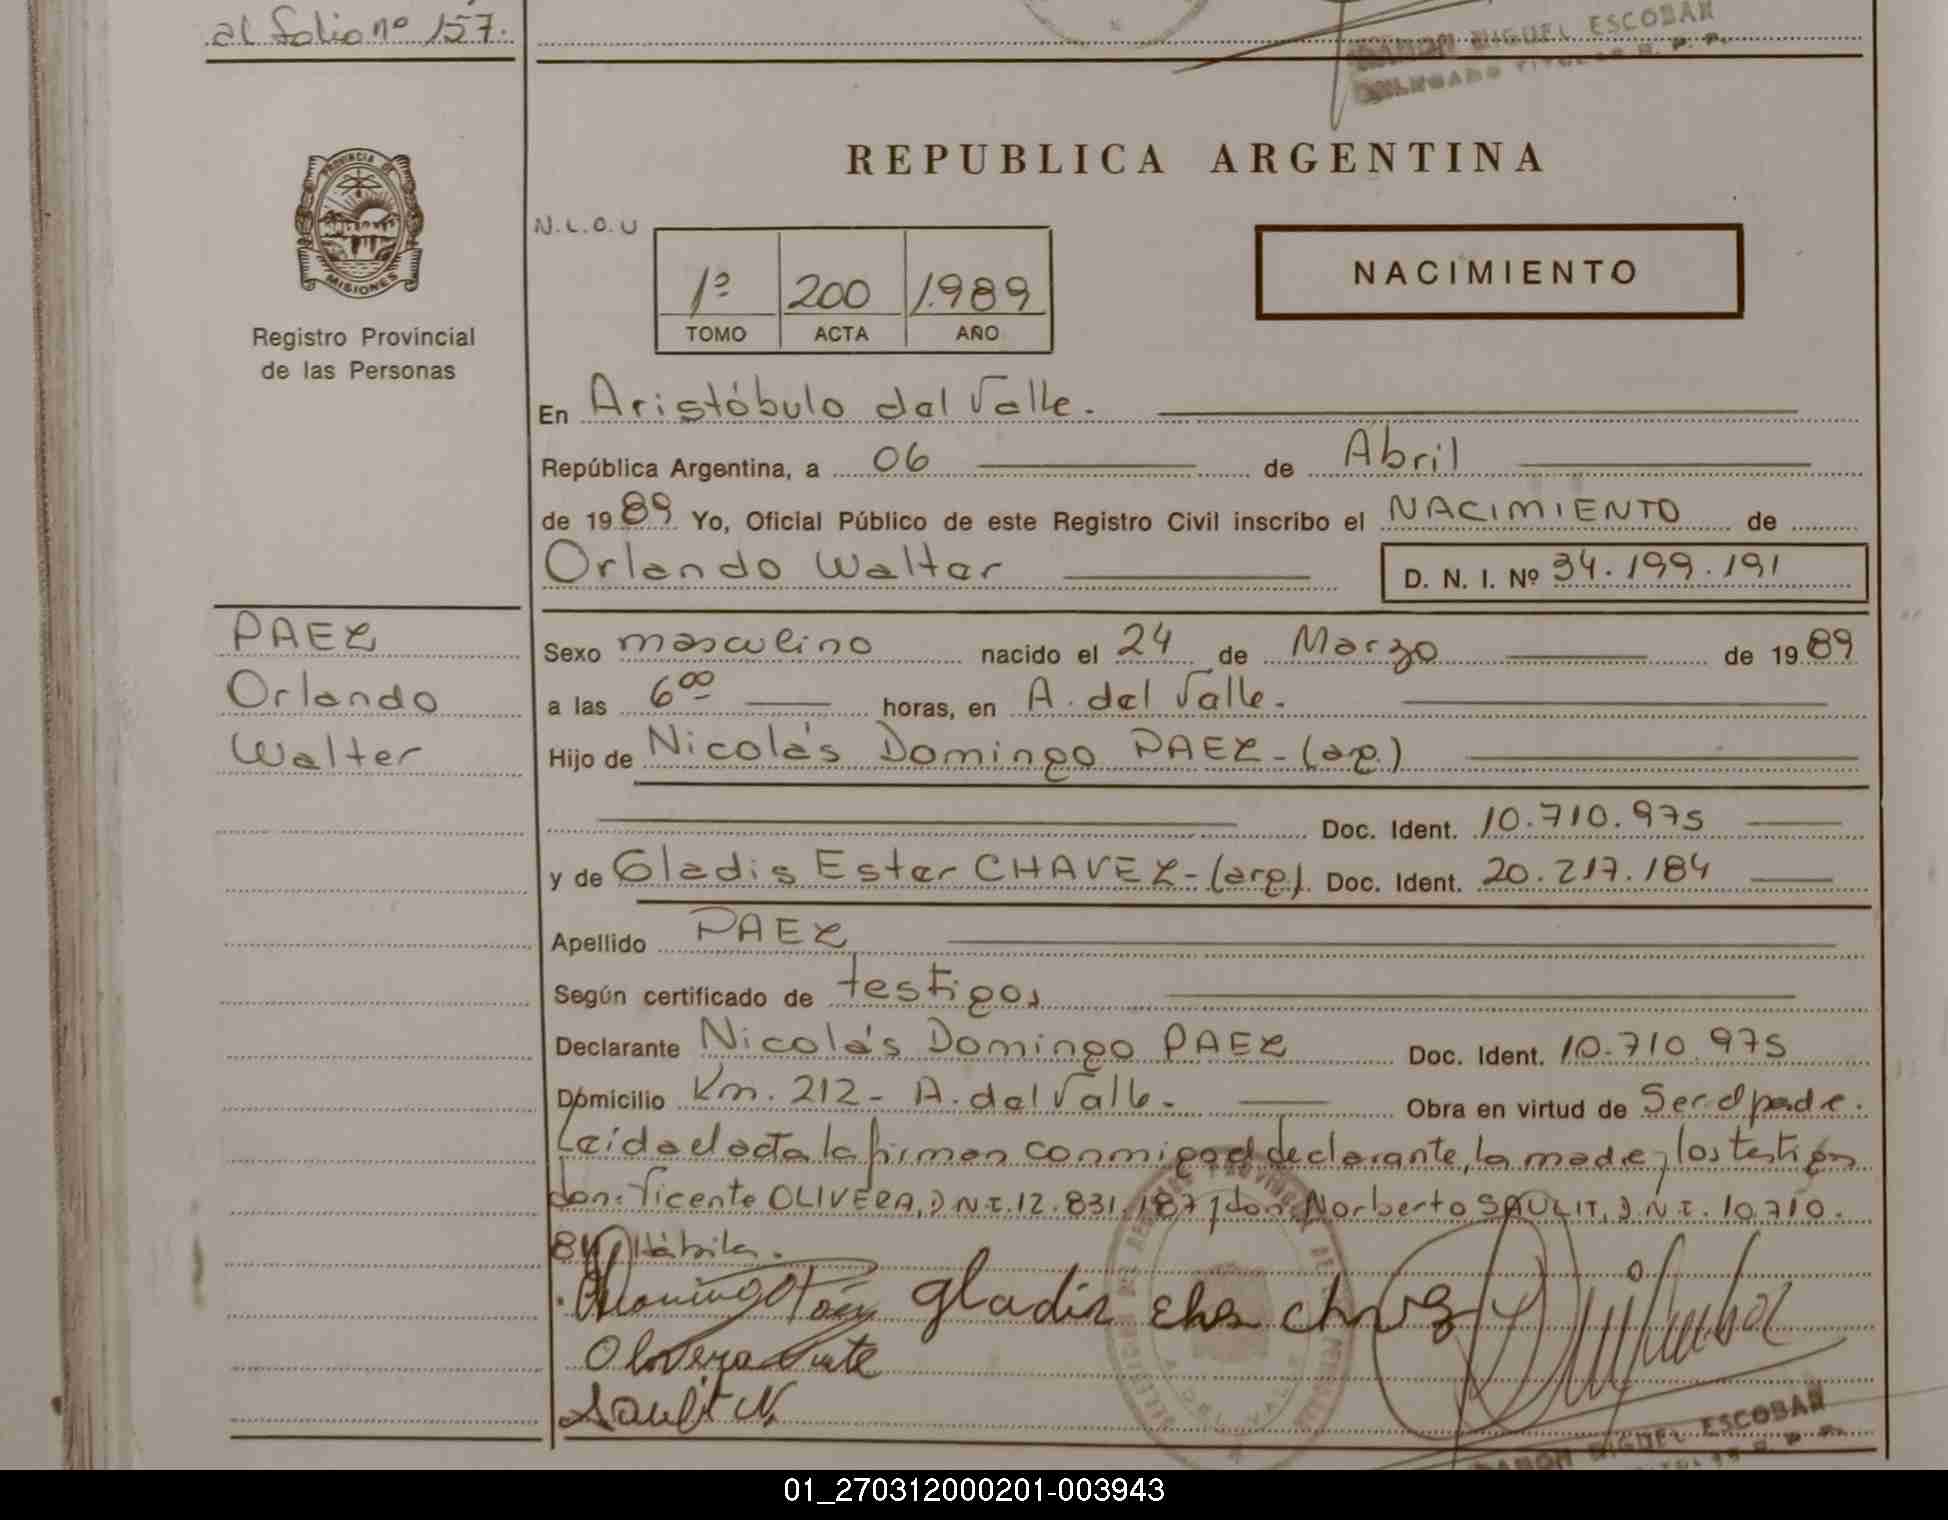 al folio nº 157.
RAMON MIGUEL ESCOBAR
DELEGADO TITULAR R. P. P.
PROVINCIA DE
MISIONES
Registro Provincial
de las Personas
REPUBLICA ARGENTINA
N.L.O.U
1º 200 1.989
TOMO ACTA AÑO
NACIMIENTO
En Aristóbulo del Valle.
República Argentina, a 06 de Abril
de 1989 Yo, Oficial Público de este Registro Civil inscribo el NACIMIENTO de
Orlando Walter D. N. I. Nº 34.199.191
PAEZ
Orlando
Walter
Sexo masculino nacido el 24 de Marzo de 1989
a las 6⁰⁰ horas, en A. del Valle.
Hijo de Nicolás Domingo PAEZ - (arg.)
Doc. Ident. 10.710.975
y de Gladis Ester CHAVEZ - (arg). Doc. Ident. 20.217.184
Apellido PAEZ
Según certificado de testigos
Declarante Nicolás Domingo PAEZ Doc. Ident. 10.710.975
Domicilio Km. 212 - A. del Valle. Obra en virtud de Ser el padre.
Leida el acta la firman conmigo el declarante, la madre y los testigos
don: Vicente OLIVERA, D.N.I. 12.831.187 y don: Norberto SAULIT, D.N.I. 10.710.
Hábiles.
Domingo Páez gladis chavez
Olivera
Saulit N.
RAMON MIGUEL ESCOBAR
01_270312000201-003943